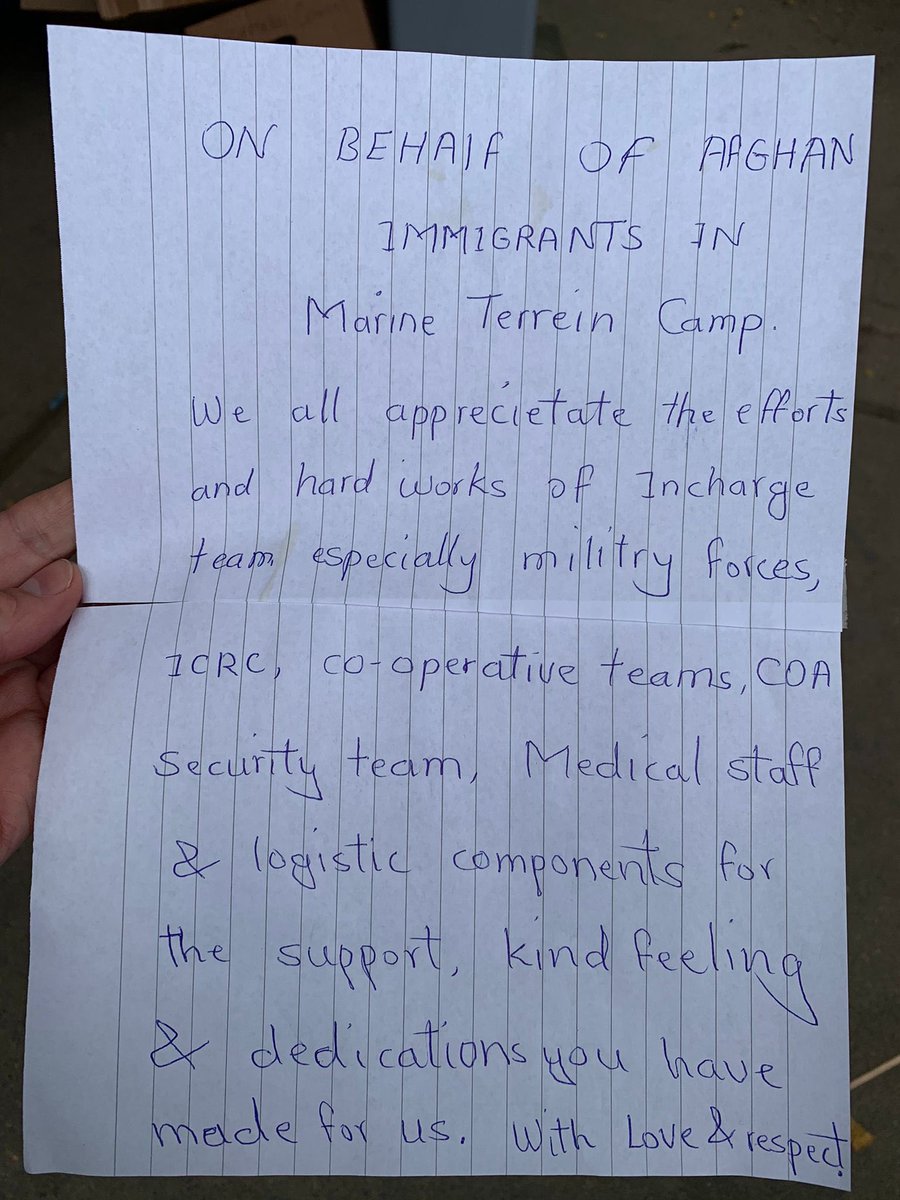 ON BEHAlf OF AfGHAN
IMMIGRANTS IN
Marine Terrein Camp.
We all apprecietate the efforts
and hard works of Incharge
team especially militry forces,
ICRC, co-operative teams, COA
Security team, Medical staff
& logistic components for
the support, kind feeling
& dedications you have
made for us. With Love & respect!